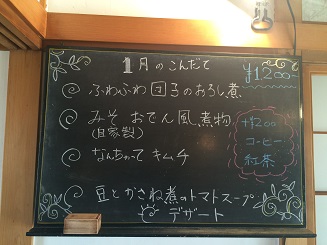 1月のこんだて
¥1200-
ふわふわ団子のおろし煮
みそ おでん風煮物
(自家製)
なんちゃって キムチ
豆とかさね煮のトマトスープ
デザート
+¥200
コーヒー
紅茶